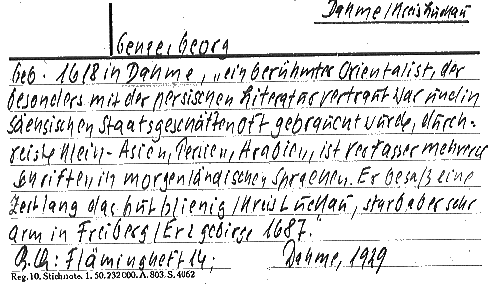 Dahme/Kreis Luckau
Genze, Georg
geb. 1618 in Dahme, „ein berühmter Orientalist, der
besonders mit der persischen Literatur vertraut war und in
sächsischen Staatsgeschäften oft gebraucht wurde, durch-
reiste Klein-Asien, Persien, Arabien, ist Verfasser mehrerer
Schriften in morgenländischen Sprachen. Er besaß eine
Zeitlang das Gut Zlienig/Kreis Luckau, starb aber sehr
arm in Freiberg/Erzgebirge 1687."
Flämingheft 14; Dahme, 1929
Reg. 10. Stichnote. 1. 50.232000. A. 803. S. 4062